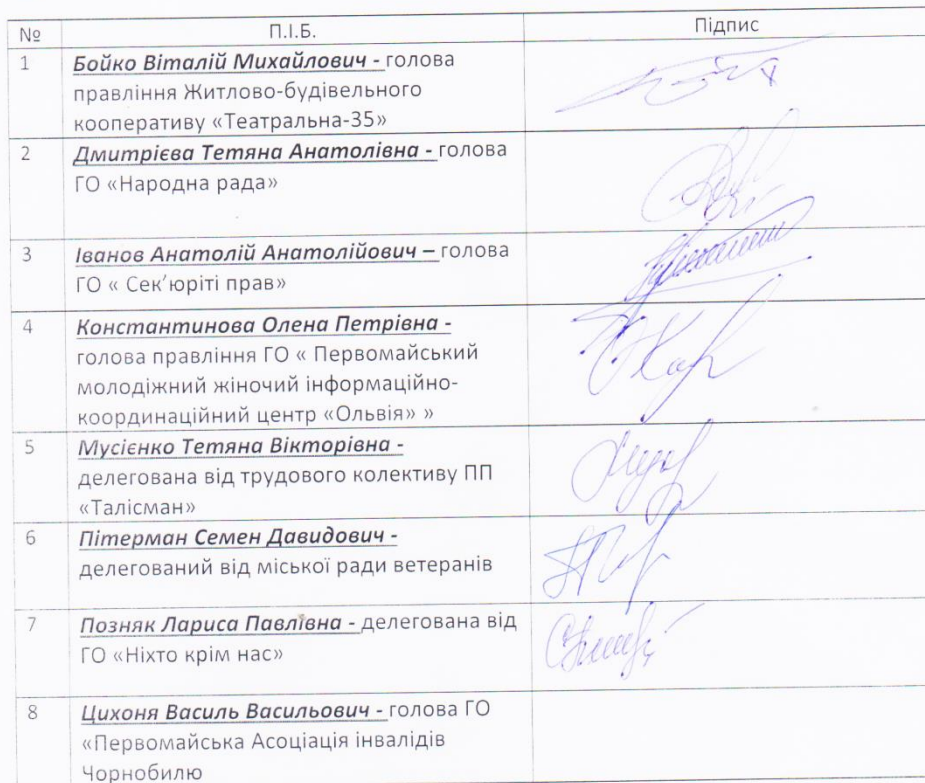 № П.І.Б. Підпис
1 Бойко Віталій Михайлович - голова
правління Житлово-будівельного
кооперативу «Театральна-35»
2 Дмитрієва Тетяна Анатоліївна - голова
ГО «Народна рада»
3 Іванов Анатолій Анатолійович – голова
ГО « Сек’юріті прав»
4 Константинова Олена Петрівна -
голова правління ГО « Первомайський
молодіжний жіночий інформаційно-
координаційний центр «Ольвія» »
5 Мусієнко Тетяна Вікторівна -
делегована від трудового колективу ПП
«Талісман»
6 Пітерман Семен Давидович -
делегований від міської ради ветеранів
7 Позняк Лариса Павлівна - делегована від
ГО «Ніхто крім нас»
8 Цихоня Василь Васильович - голова ГО
«Первомайська Асоціація інвалідів
Чорнобилю